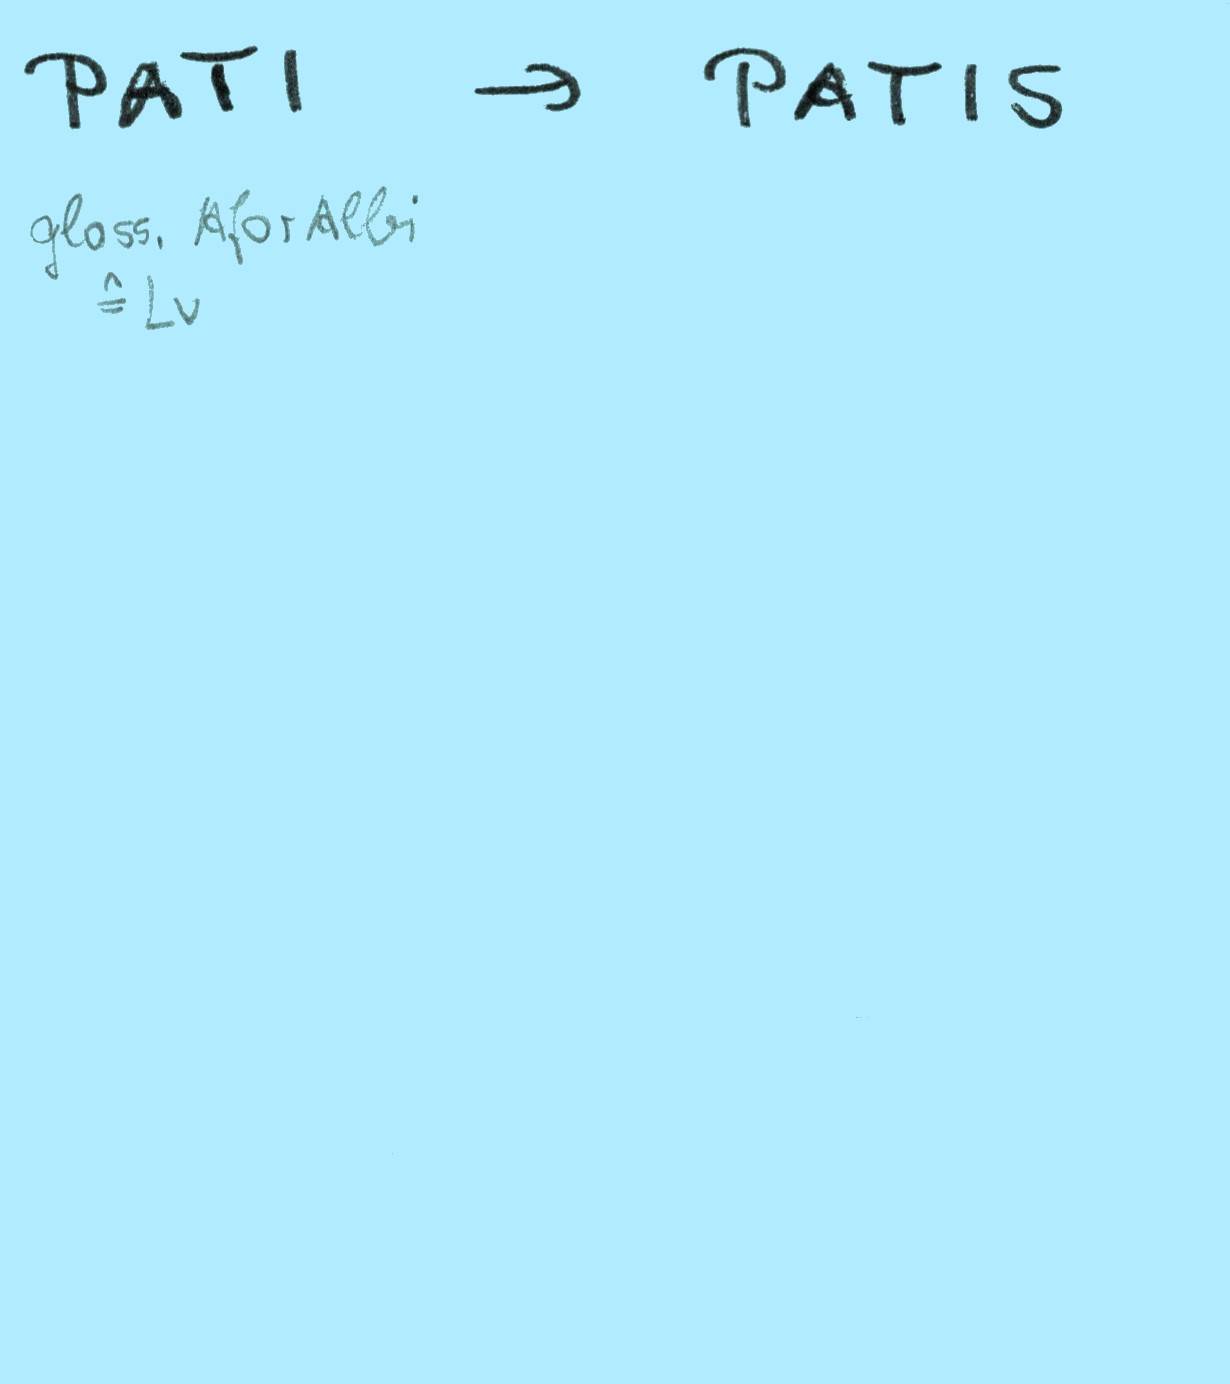 PATI → PATIS
gloss. AforAlbi
≙ Lv